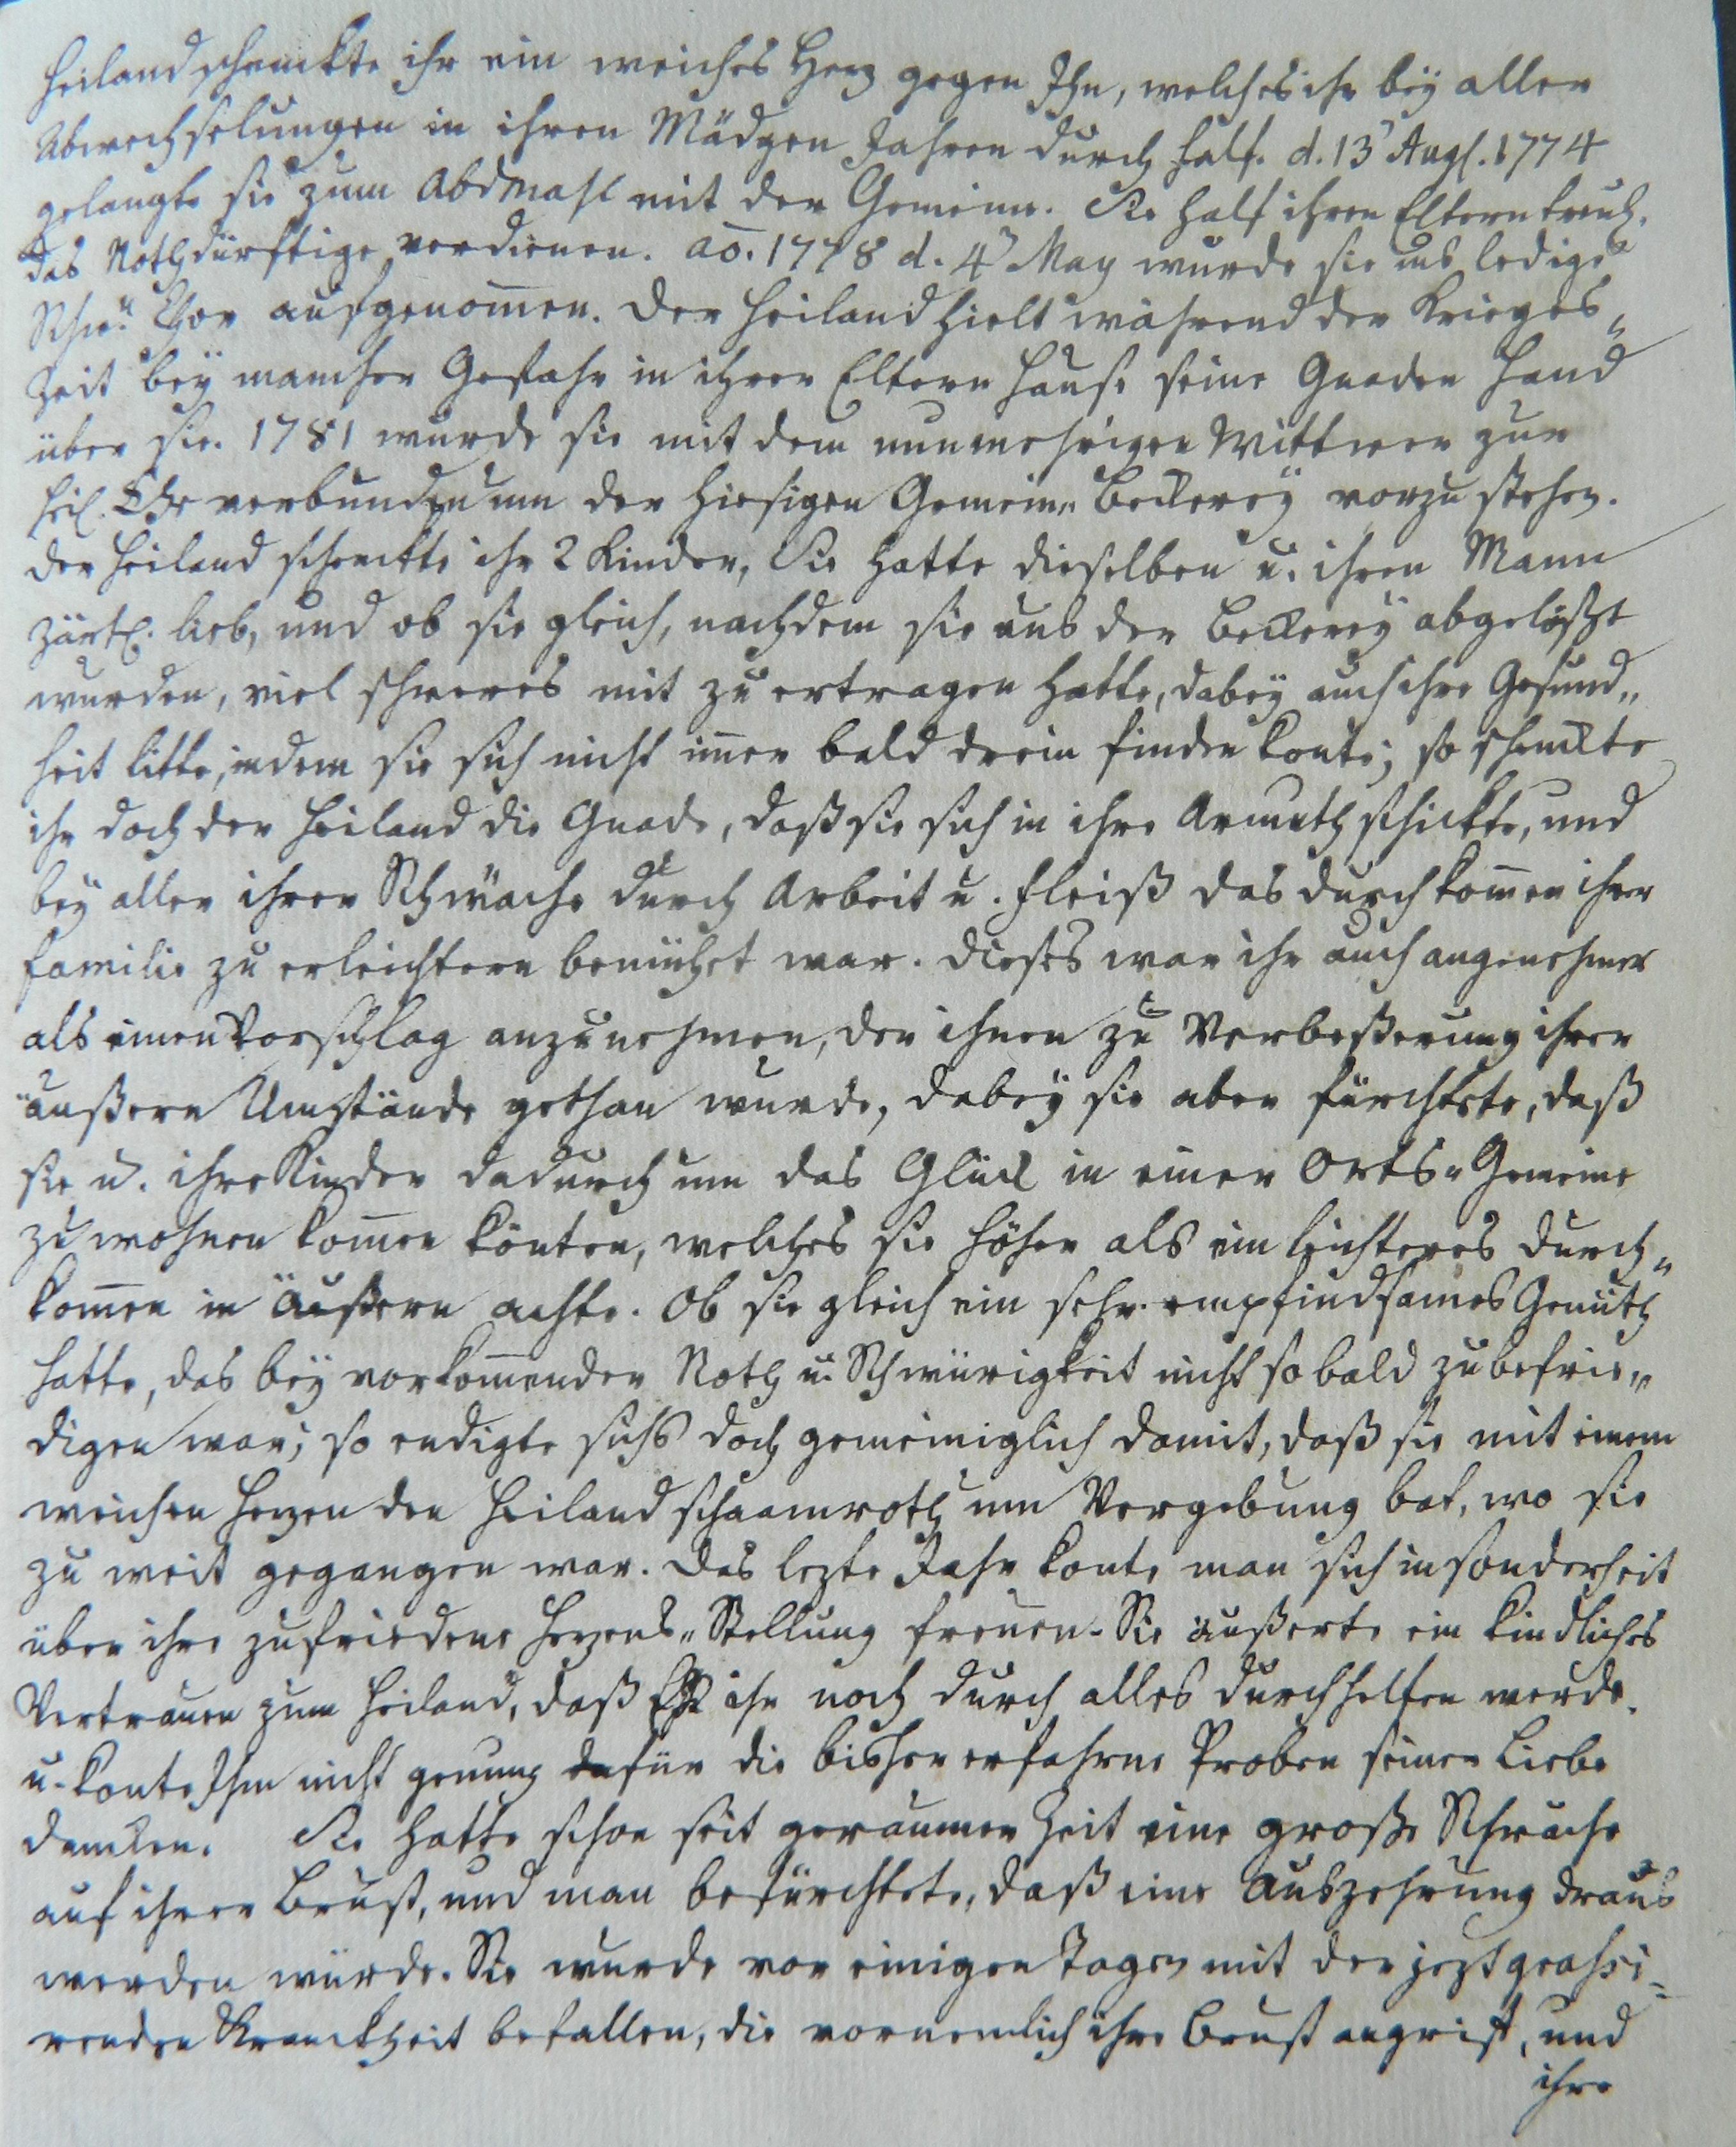 Heiland schenckte ihr ein weiches Herz gegen Ihn, welches ihr bey allen
Abwechselungen in ihren Mädgen Jahren durch half. d. 13 Augs. 1774
gelangte sie zum Abdmahl mit der Gemeine. Sie half ihren Eltern treul.
das Nothdürftige verdienen. ao. 1778 d. 4 May wurde sie ins ledige
Schw. Chor aufgenom̄en. Der Heiland hielt während der Krieges„
Zeit bey mancher Gefahr in ihrer Eltern Hause seine Gnaden Hand
über sie. 1781 wurde sie mit dem nunmehrigen Wittwer zur
heil. Ehe verbunden um der hiesigen Gemein„ Beckerey vorzustehen.
Der Heiland schenckte ihr 2 Kinder, Sie hatte dieselben u. ihren Mann
zärtl. lieb, und ob sie gleich, nachdem sie aus der Beckerey abgelößt
wurden, viel schweres mit zu ertragen hatte, dabey auch ihre Gesund„
heit litte, indem sie sich nicht im̄er bald drein finden konte; so schenckte
ihr doch der Heiland die Gnade, daß sie sich in ihre Armuth schickte, und
bey aller ihrer Schwäche durch Arbeit u. Fleiß das durchkom̄en ihrer
Familie zu erleichtern bemühet war. Dieses war ihr auch angenehmer
als einen Vorschlag anzunehmen, der ihnen zu Verbeßerung ihrer
äußern Umstände gethan wurde, dabey sie aber fürchtete, daß
sie u. ihre Kinder dadurch um das Glück in einer Orts„Gemeine
zu wohnen kom̄en könten, welches sie höher als ein leichteres durch„
kom̄en in äußern achte. Ob sie gleich ein sehr empfindsames Gemüth
hatte, das bey vorkom̄ender Noth u. Schwürigkeit nicht so bald zu befrie„
digen war; so endigte sichs doch gemeiniglich damit, daß sie mit einem
weichen Herzen den Heiland schaamroth um Vergebung bat, wo sie
zu weit gegangen war. Das lezte Jahr konte man sich insonderheit
über ihre zufriedene Herzens„Stellung freuen. Sie äußerte ein kindliches
Vertrauen zum Heiland, daß Er ihr noch durch alles durchhelfen werde.
u. konte Ihm nicht genung für die bisher erfahrne Proben seiner Liebe
dancken. Sie hatte schon seit geraumer Zeit eine große Schwäche
auf ihrer Brust, und man befürchtete, daß eine Auszehrung draus
werden würde. Sie wurde vor einigen Tagen mit der jezt grassi=
renden Kranckheit befallen, die vornemlich ihre Brust angrif, und
ihre